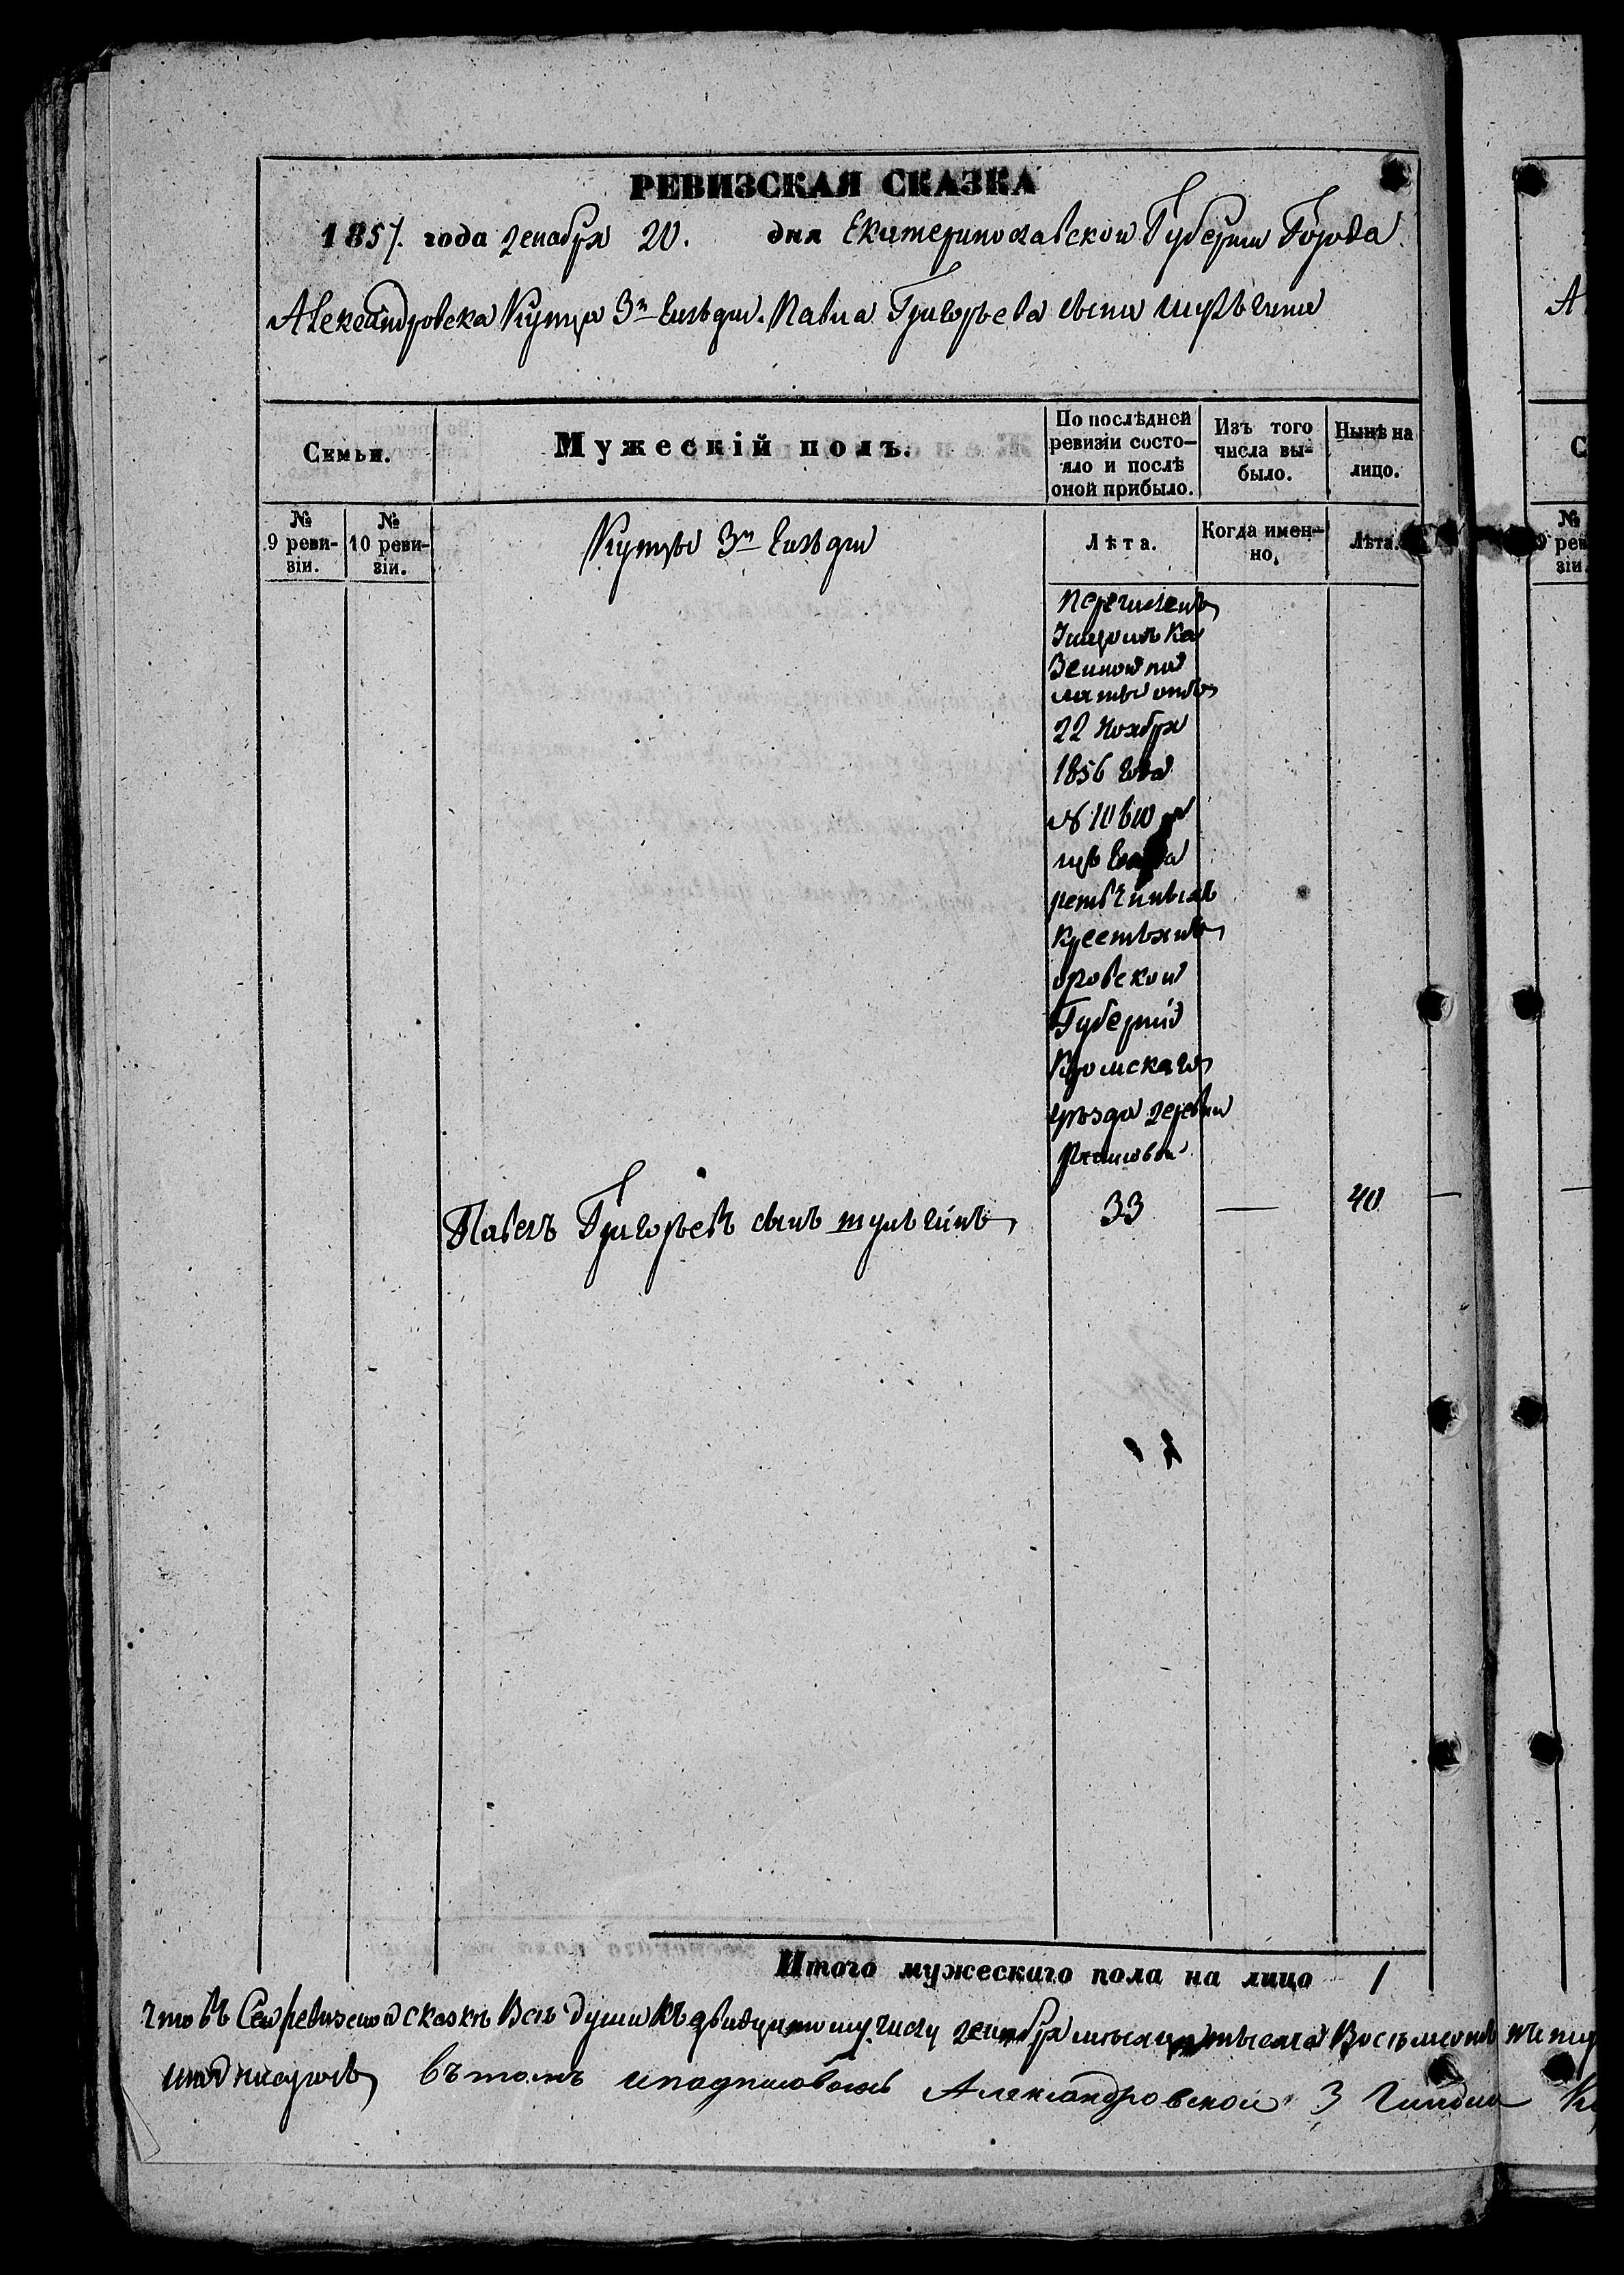 РЕВИЗСКАЯ СКАЗКА
1857. года декабря 20. дня Екатеринославской Губернии Города
Александровска Купца 3й Гильдии. Павла Григорьева сына
Семьи.
Мужескій полъ.
По послѣдней ревизіи состо-
яло и послѣ
оной прибыло.
Изъ того
числа вы-
было.
Нынѣ на
лицо.
№
9 реви-
зіи.
№
10 реви-
зіи.
Купцы 3й Гильдии
Лѣта.
Когда имен-
но.
Лѣта.
Перечисленъ
Ка
Зенной па
латы отъ
22 Ноября
1856 года
№
изъ Госуда
рственныхъ
Крестьянъ
орловской
Губерніи
Кромскаго
уѣзда деревни
Павелъ Григорьевъ сынъ
33
—
40
Итого мужескаго пола на лицо 1
что въ Сей ревизской сказкѣ Всѣ души Къ двадцатому числу декабря мѣсяца тысяча Восемьсотъ
въ томъ и подписовалсь Александровской 3 Гилдии
А
С
№
9 рев
зіи.